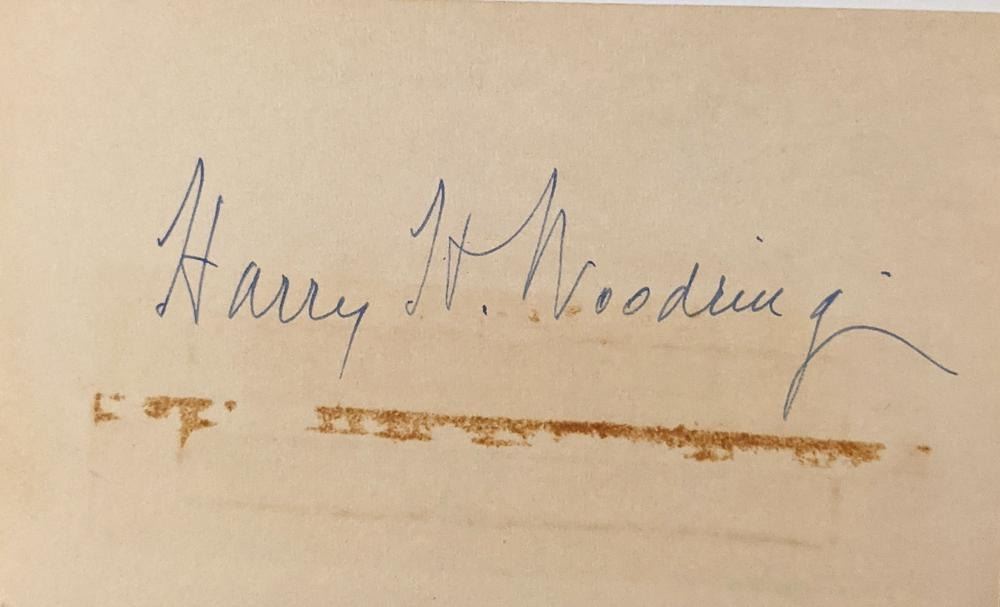 Harry H. Woodring